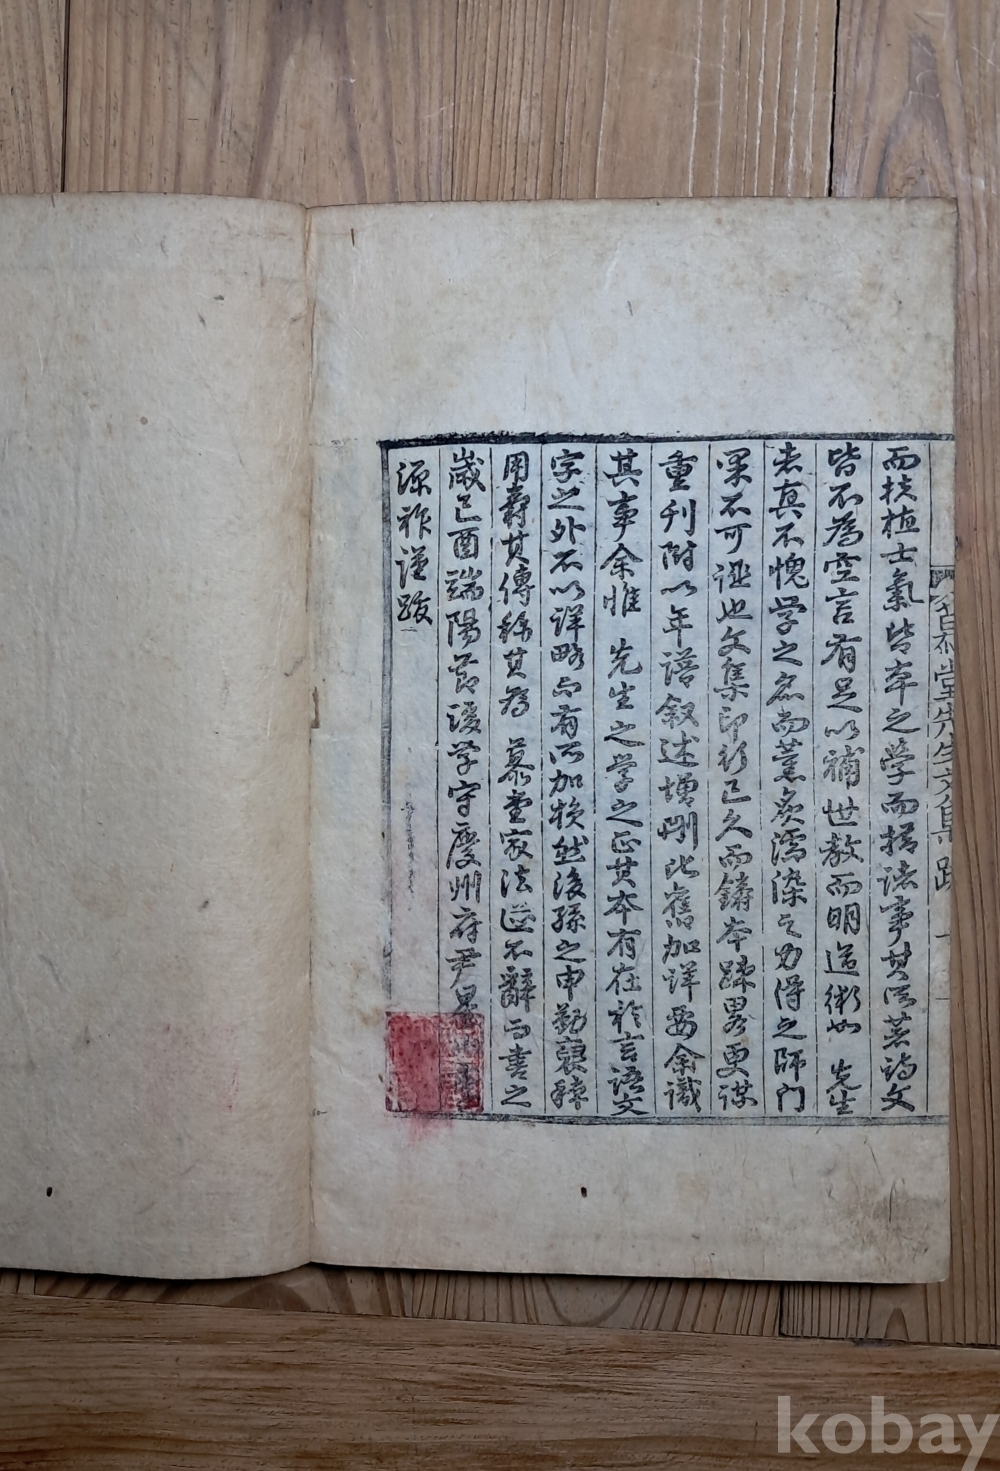 而扶植士氣皆本之學而措諸事其所著詩文
皆不為空言有足以補世敎而明道術如 先生
者真不愧学之名而薰炙濡染之功得之師門
果不可誣也文集印行已久而鋳本踈畧更謀
重刊附以年譜叙述增刪比舊加詳要余識
其事余惟 先生之学之正其本有在於言语文
字之外不以详略而有所加损然後孫之申勤裒稡
用壽其傳称其為 慕堂家法遂不辭而書之
歲己酉端陽節後学守慶州府尹
源祚谨跋
堂先生文集 跋
kobay